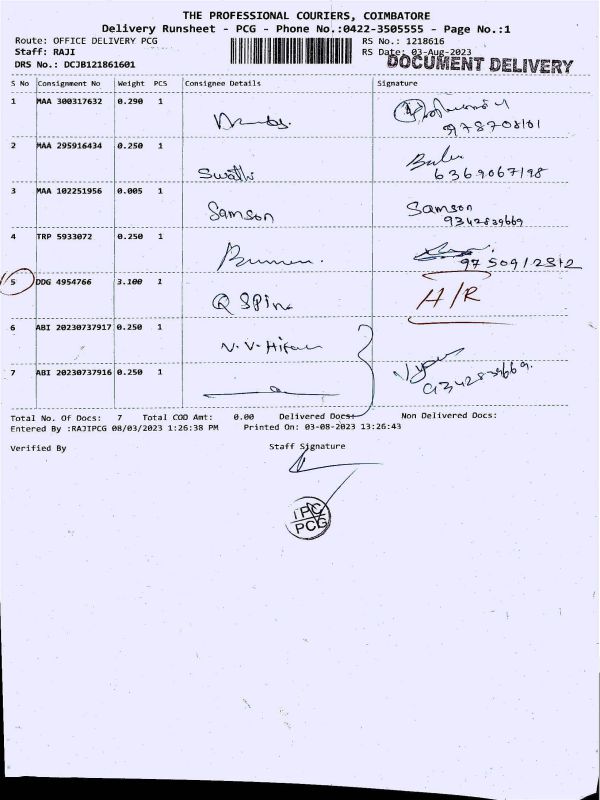 THE PROFESSIONAL COURIERS, COIMBATORE
Delivery Runsheet - PCG - Phone No.:0422-3505555 - Page No.:1
Route: OFFICE DELIVERY PCG RS No.: 1218616
Staff: RAJI RS Date: 03-Aug-2023
DRS No.: DCJB121861601 DOCUMENT DELIVERY
S No Consignment No Weight PCS Consignee Details Signature
1 MAA 300317632 0.290 1
2 MAA 295916434 0.250 1
Swathi 6369067198
3 MAA 102251956 0.005 1 Samson
Samson 9342839669
4 TRP 5933072 0.250 1
9750912812
5 DDG 4954766 3.100 1 H/R
6 ABI 20230737917 0.250 1
7 ABI 20230737916 0.250 1 9342839669.
Total No. Of Docs: 7 Total COD Amt: 0.00 Delivered Docs: Non Delivered Docs:
Entered By :RAJIPCG 08/03/2023 1:26:38 PM Printed On: 03-08-2023 13:26:43
Verified By Staff Signature
TPC
PCG